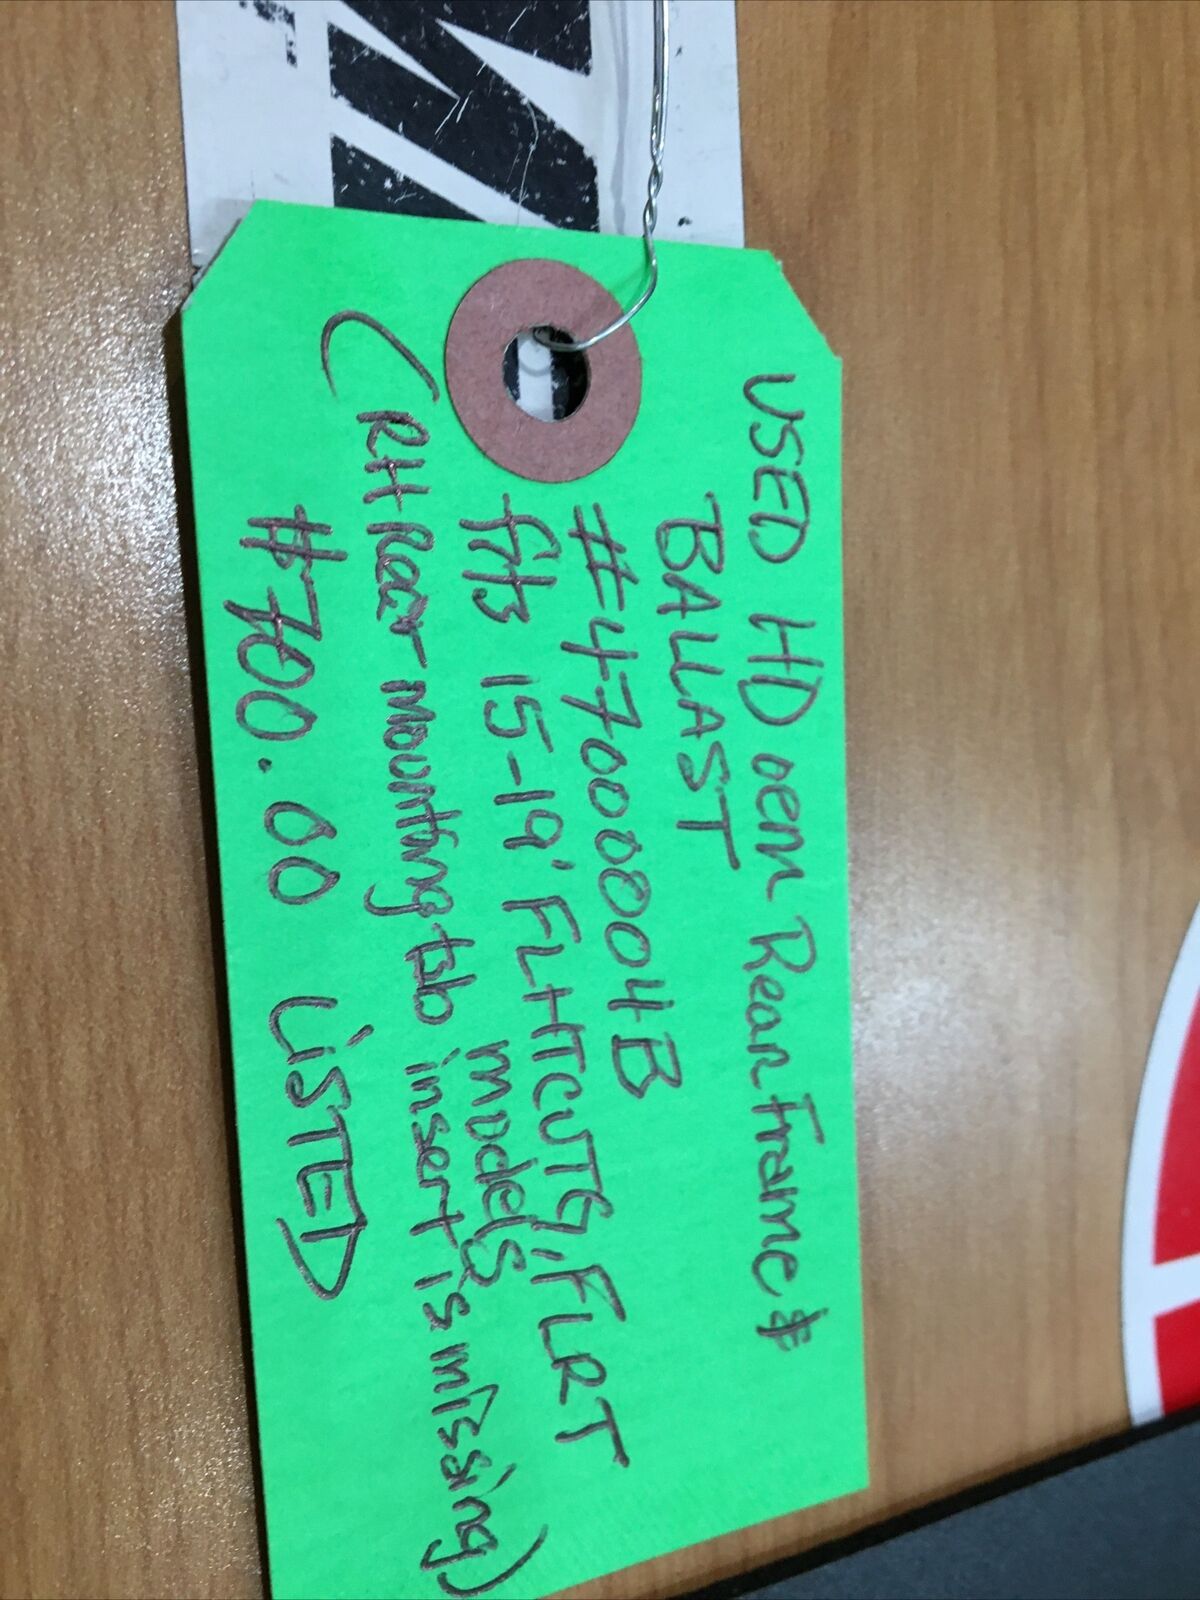 USED HD oem Rear Frame &
BALLAST
#470008004B
fits 15-19' FLHTCUTG, FLRT
models
(RH Rear mounting tab insert is missing)
#700.00 LISTED